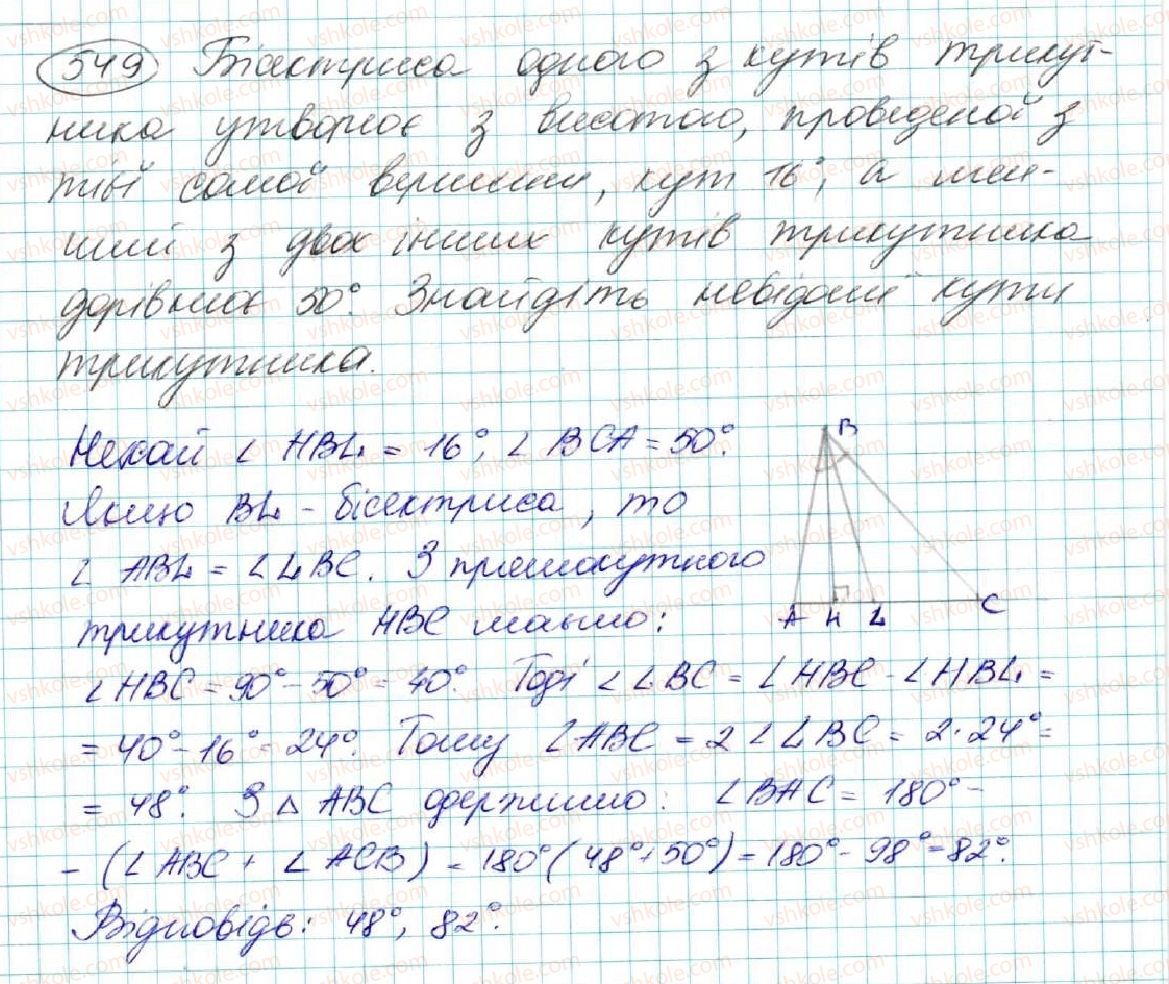 549 Бісектриса одного з кутів трикут-
ника утворює з висотою, проведеної з
тієї самої вершини, кут 16°, а мен-
ший з двох інших кутів трикутника
дорівнює 50°. Знайдіть невідомі кути
трикутника.
Нехай ∠ HBL = 16°, ∠ BCA = 50°.
Якщо BL - бісектриса, то
∠ ABL = ∠ LBC. З прямокутного
трикутника HBC маємо:
∠ HBC = 90° - 50° = 40°. Тоді ∠ LBC = ∠ HBC - ∠ HBL =
= 40° - 16° = 24°. Тому ∠ ABC = 2 ∠ LBC = 2·24° =
= 48°. З △ ABC одержимо: ∠ BAC = 180° -
- (∠ ABC + ∠ ACB) = 180° (48° + 50°) = 180° - 98° = 82°.
Відповідь: 48°, 82°.
B
A H L C